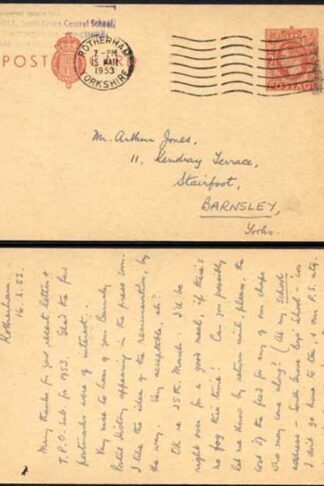 South Grove Central School,
POST CARD
ROTHERHAM
7-PM
15 MAR
1953
YORKSHIRE
POSTAGE
Mr. Arthur Jones,
11, Kendray Terrace,
Stairfoot,
BARNSLEY,
Yorks.
Rotherham
16.3.53.
Many thanks for your recent letter &
T.P.O. sub. for 1953. Glad the few
postmarks were of interest.
Very nice to hear of your Barnsley
Postal History appearing in the press soon.
I like the idea of the remuneration, by
the way. Very acceptable, eh?
Ok re 25th. March - I'll be
right over for a good meal, if there's
no fog this time! Can you possibly
let me know by return mail, please, the
cost of the feed for any of our chaps
who may come along? (As my School
address - South Grove Boys' School - is